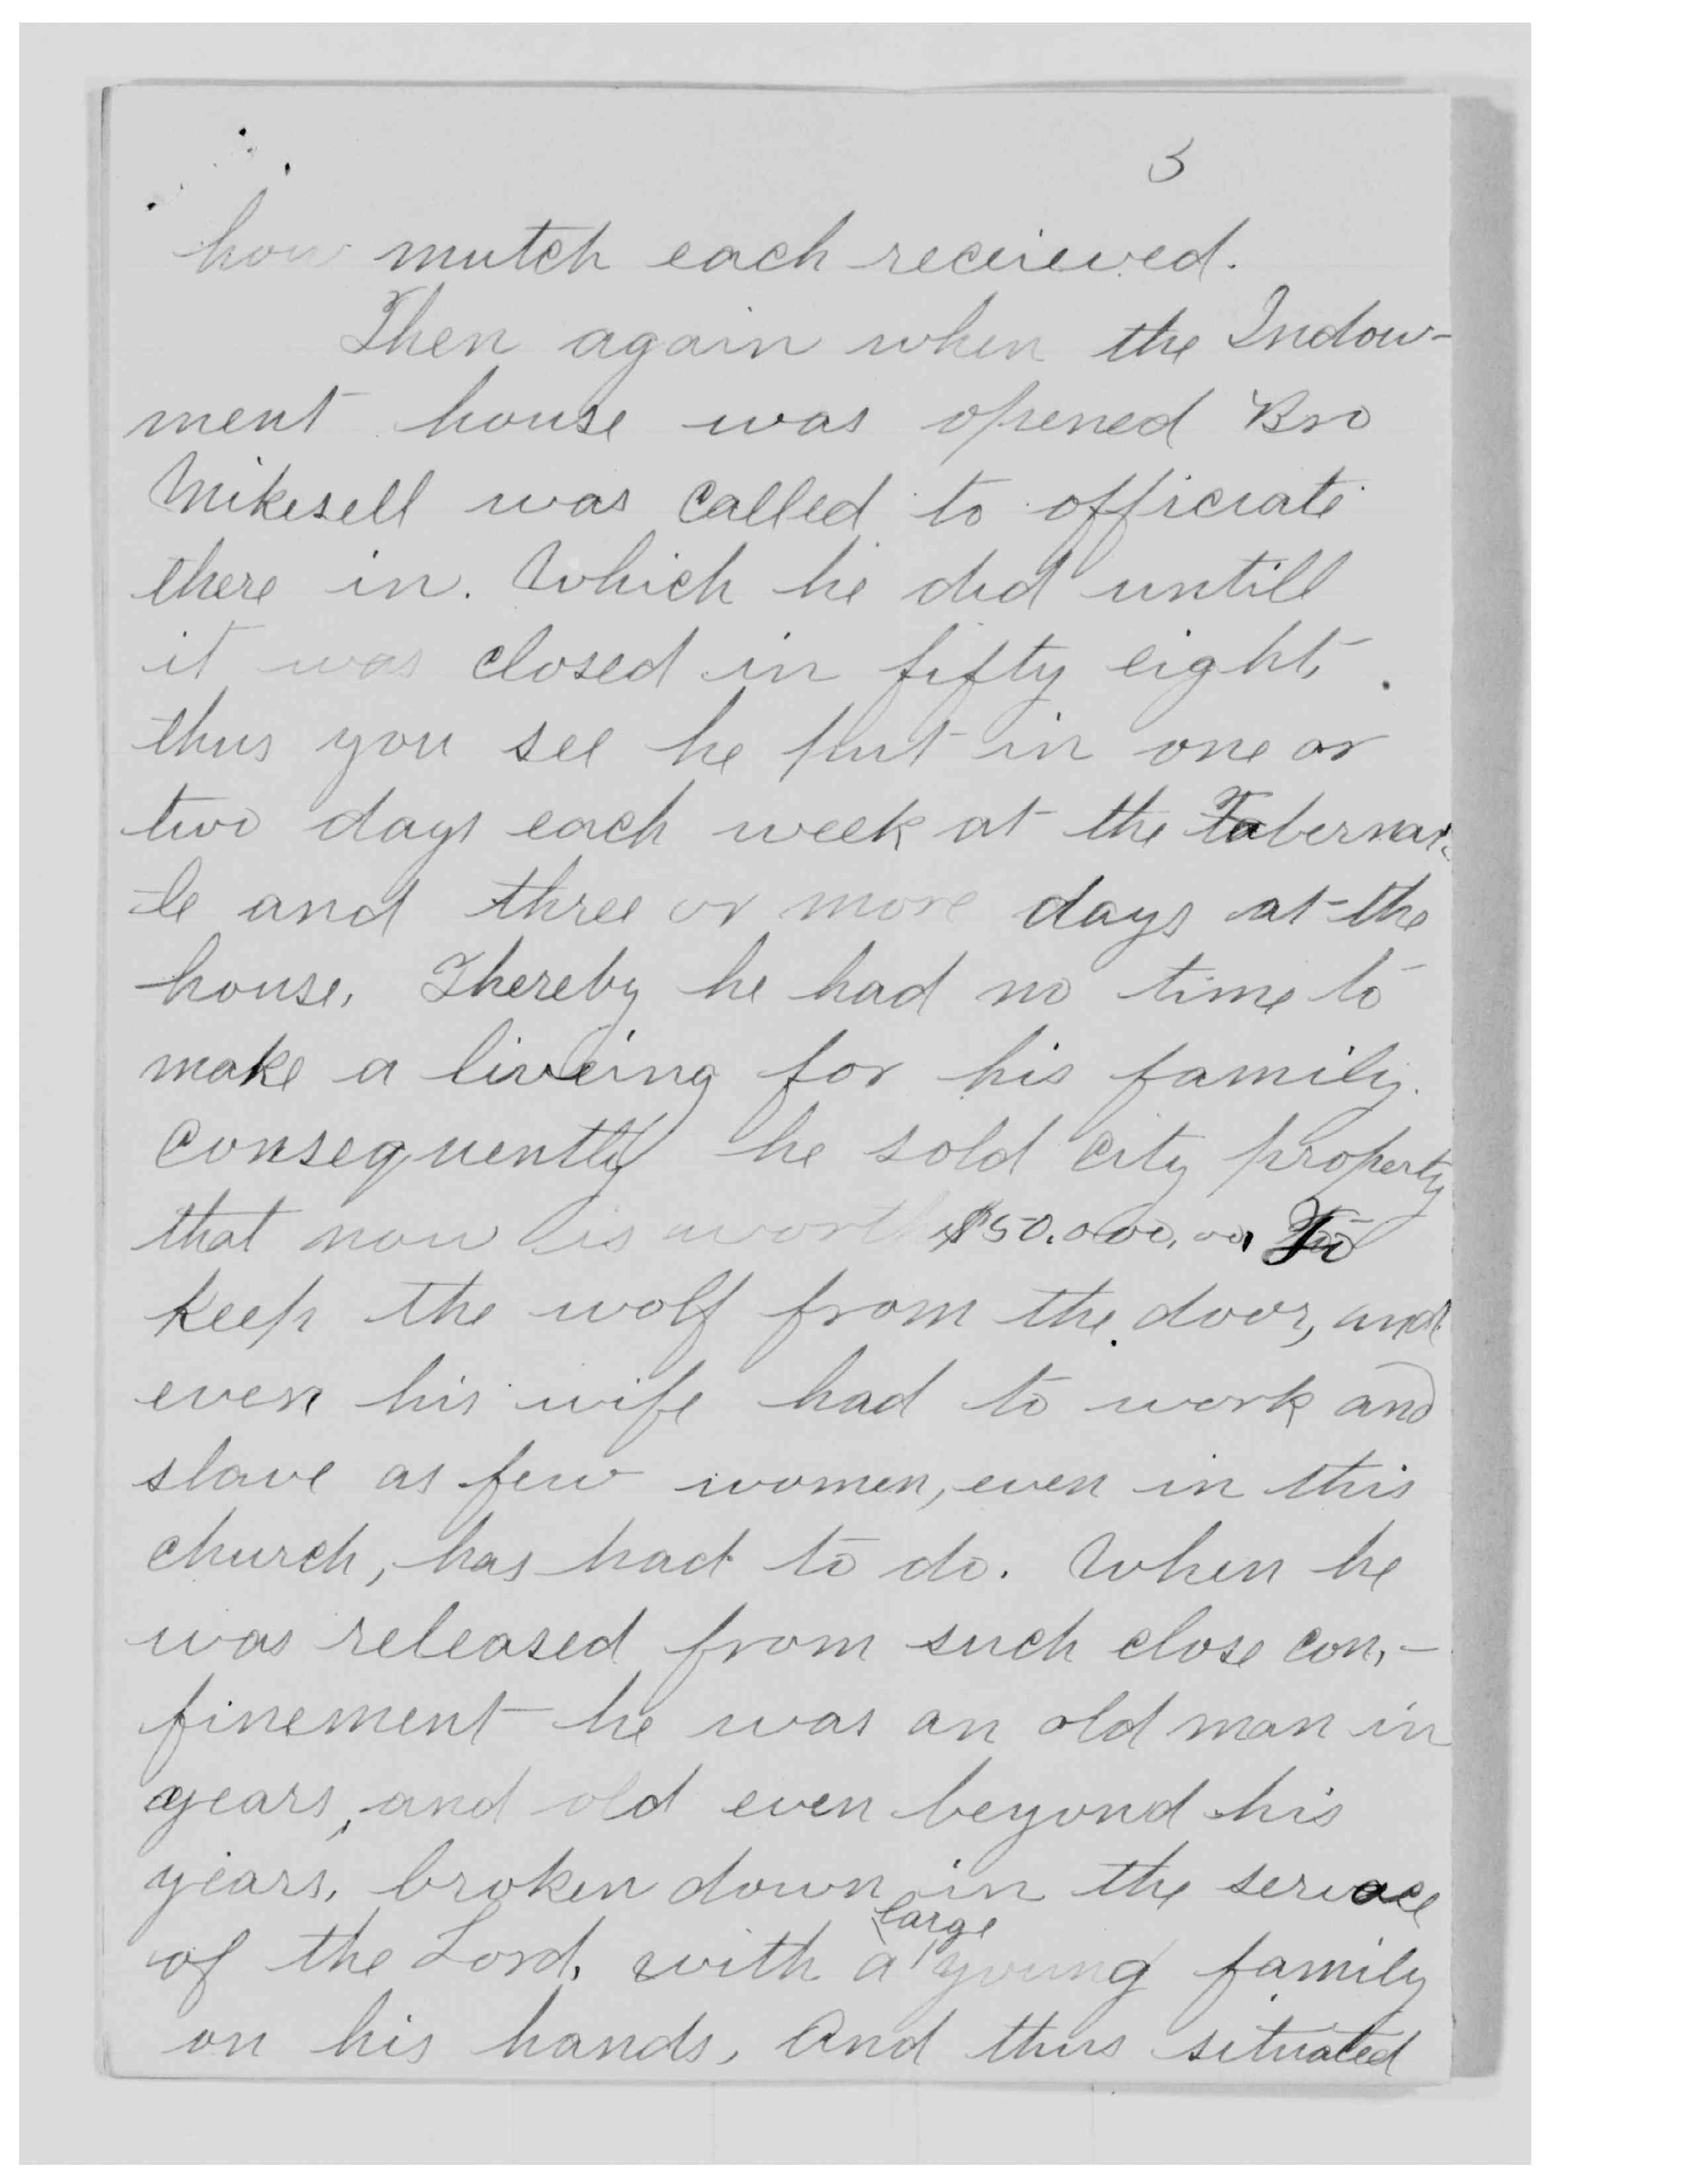 3
how mutch each recieieved.
Then again when the Indow-
ment house was opened Bro
Mikesell was called to officiate
there in. Which he did untill
it was closed in fifty eight,
thus you see he put in one or
two days each week at the Tabernac-
le and three or more days at the
house, Thereby he had no time to
make a liveing for his family.
Consequently he sold city property
that now is worth $50.000,00, To
keep the wolf from the door, and
even his wife had to work and
slave as few women, even in this
church, has had to do. When he
was released from such close con,-
finement he was an old man in
years, and old even beyond his
years, broken down in the service
large
of the Lord, with a young family
on his hands, And thus situated